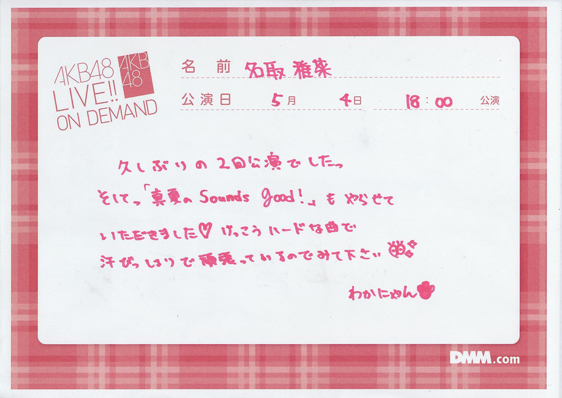 AKB48
LIVE!!
ON DEMAND
AKB
48
名前 名取 稚菜
公演日 5月 4日 18:00 公演
久しぶりの2回公演でしたっ
そしてっ「真夏のSounds good!」も やらせて
いただきました♡ けっこうハードな曲で
汗びっしょりで頑張っているのでみて下さい
わかにゃん
DMM.com